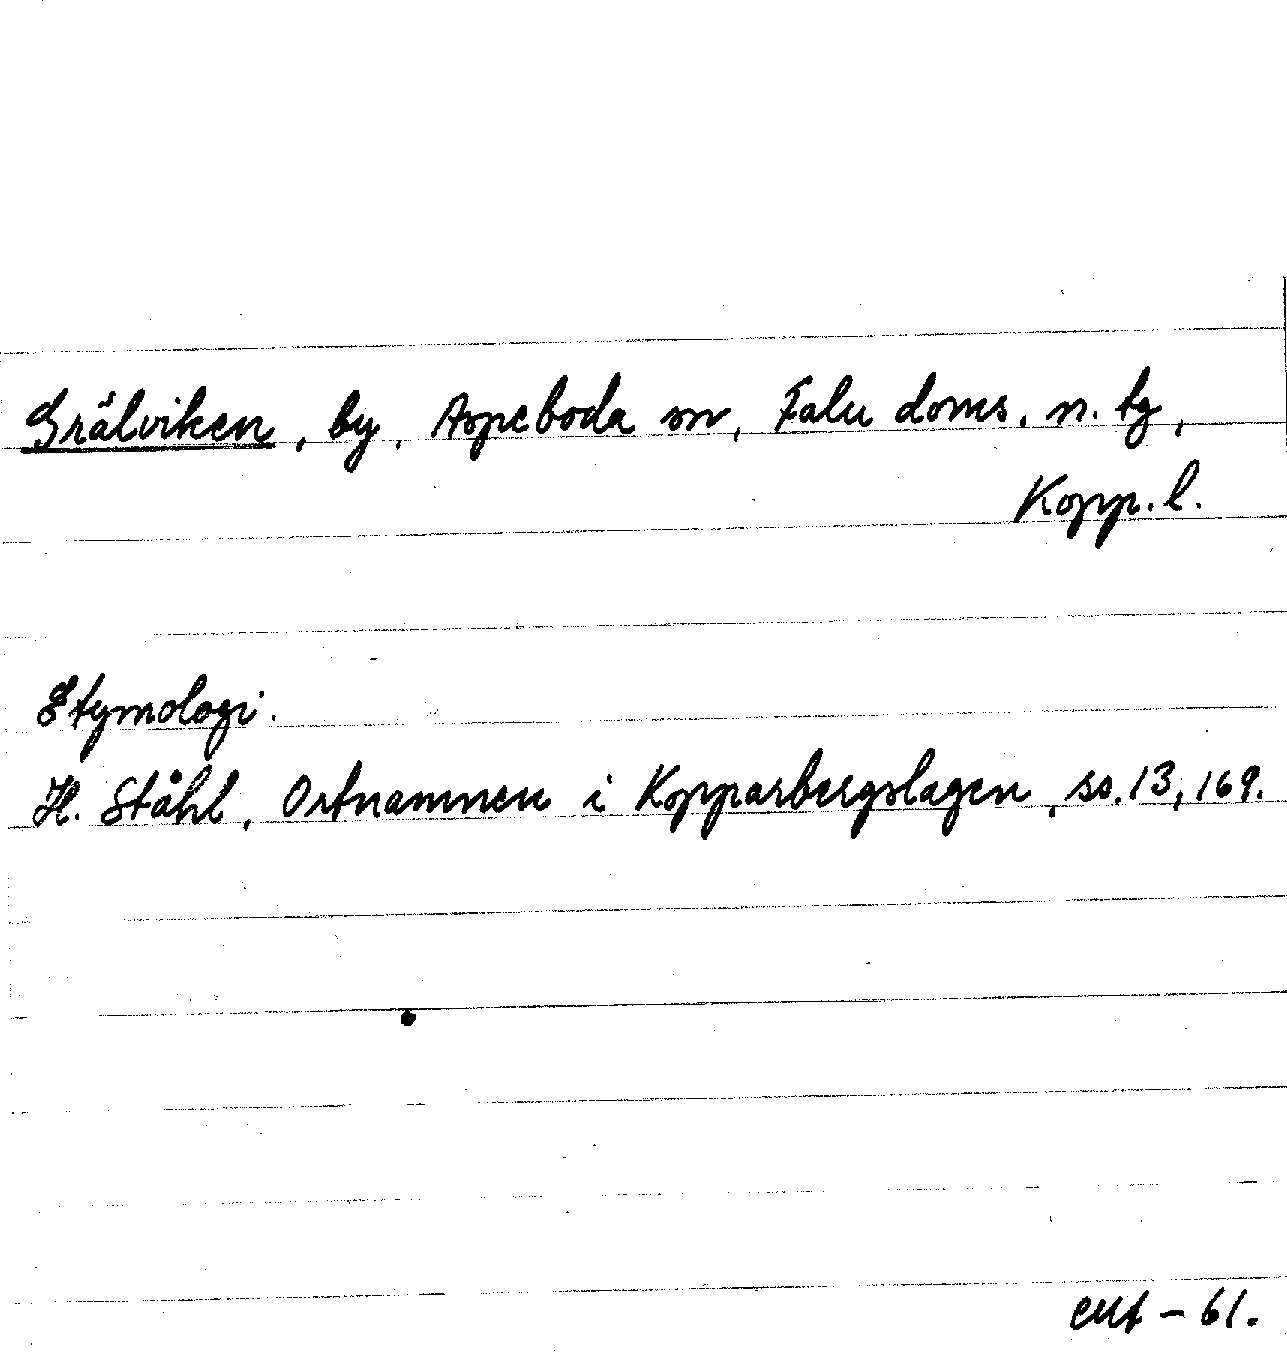 Grälviken, by, Aspeboda sn, Falu doms. n. tg,
Kopp. l.
Etymologi.
H. Ståhl, Ortnamnen i Kopparbergslagen, ss. 13, 169.
- 61.